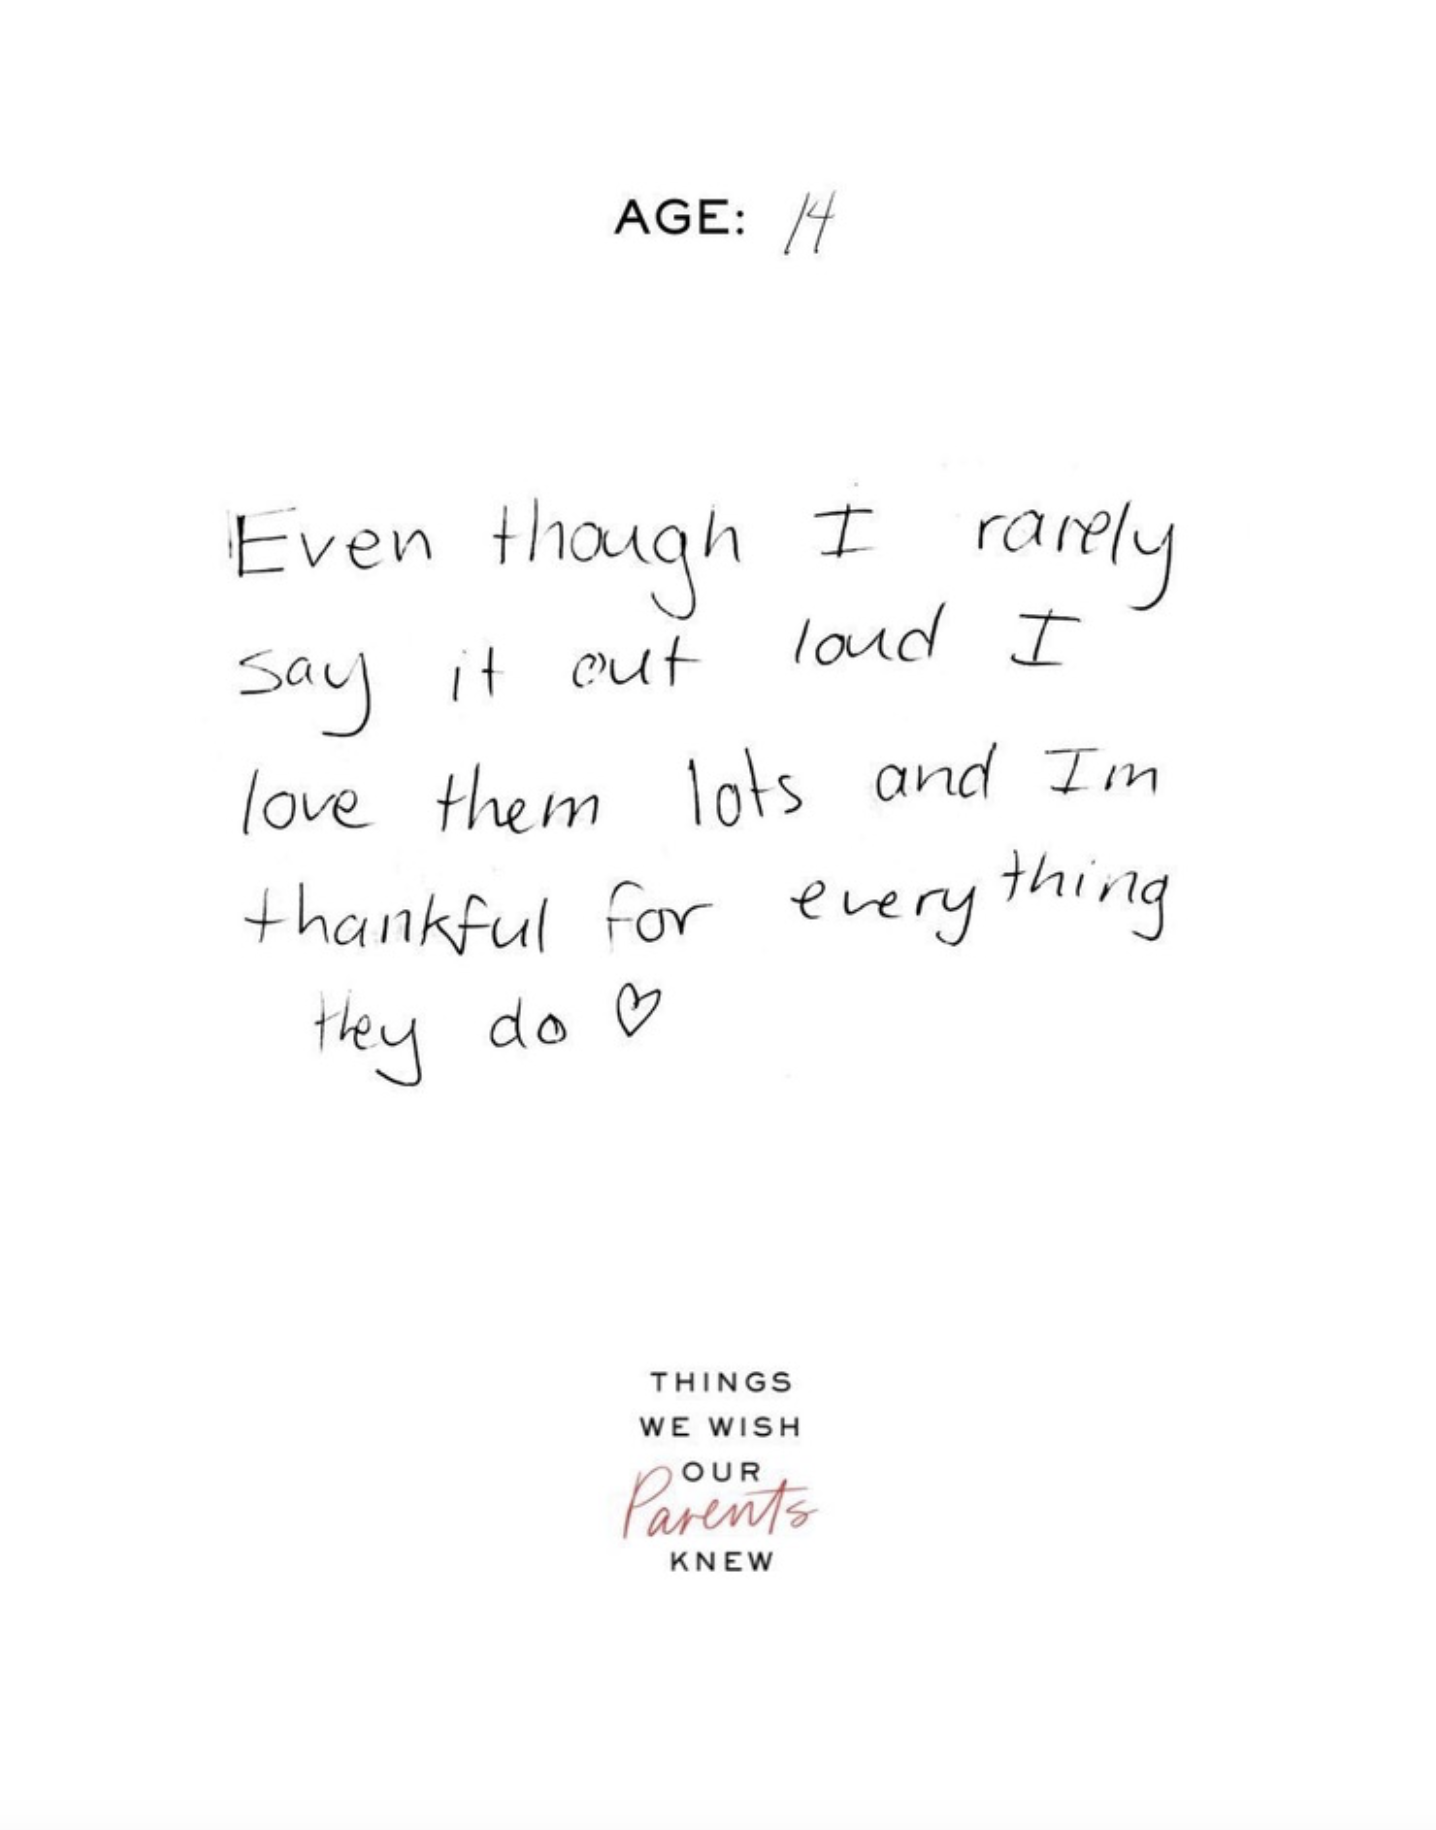 AGE: 14
Even though I rarely
say it out loud I
love them lots and Im
thankful for everything
they do ♡
THINGS
WE WISH
OUR
Parents
KNEW